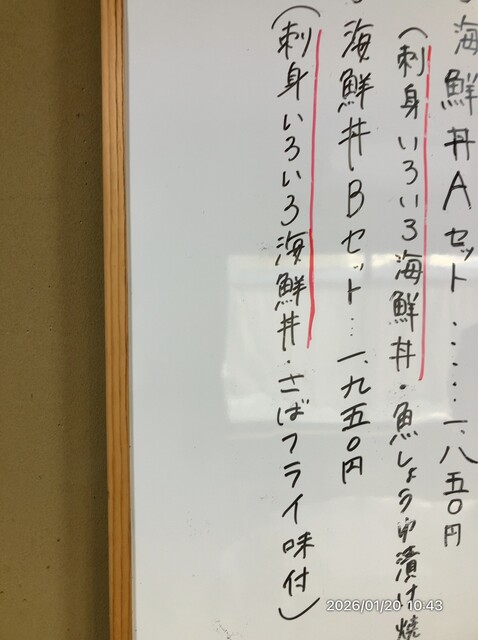 海鮮丼Aセット……一、八五〇円
(刺身いろいろ海鮮丼・魚しょうゆ漬け焼
海鮮丼・Bセット…一、九五〇円
(刺身いろいろ海鮮丼・さばフライ味付)
2026/01/20 10:43